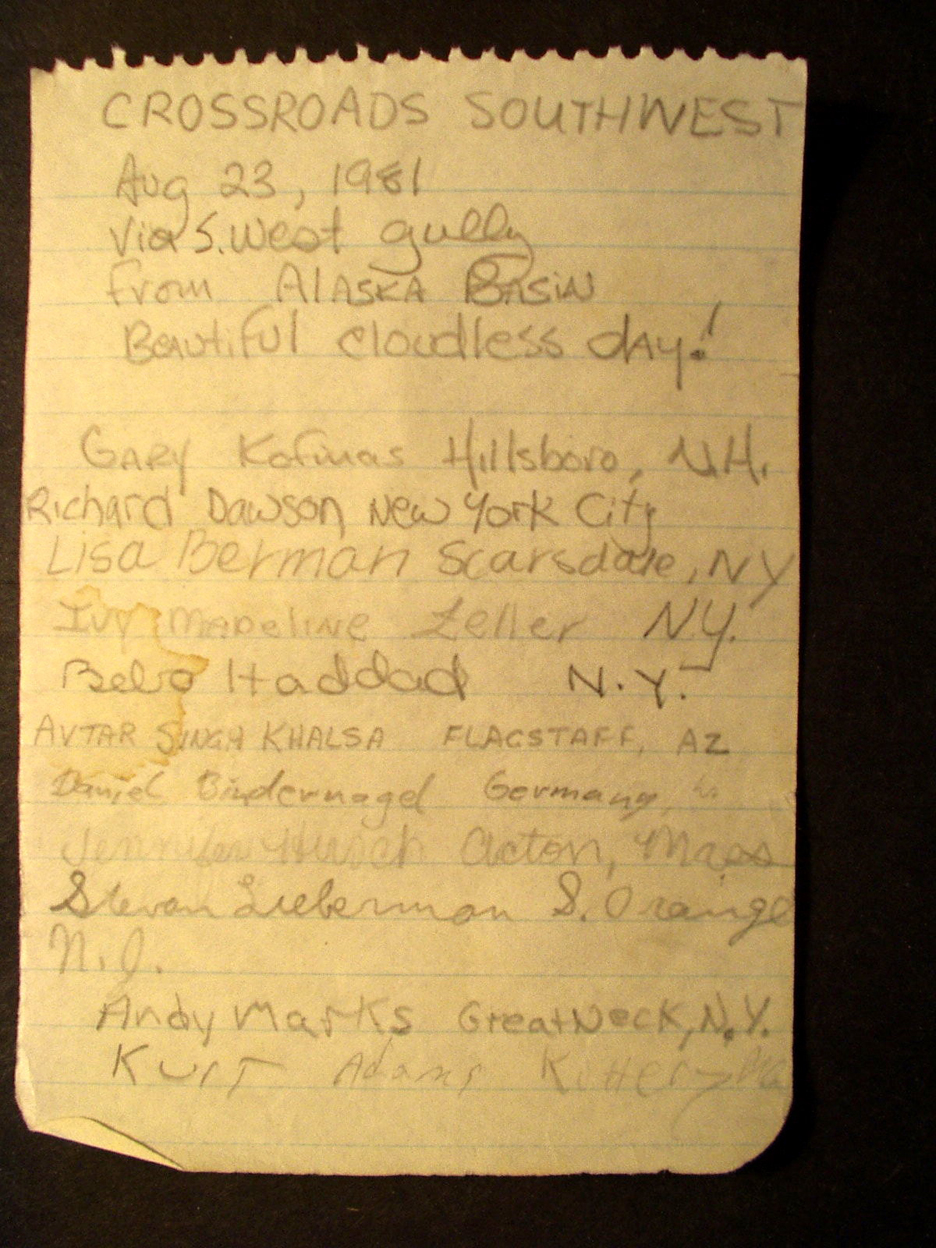 CROSSROADS SOUTHWEST
Aug 23, 1981
Via S. West gully
From ALASKA BASIN
Beautiful cloudless day!
GARY Kofinas Hillsboro, N.H.
Richard Dawson New York City
Lisa Berman Scarsdale, NY
Ivy Madeline Zeller NY.
Haddad N.Y.
AVTAR SINGH KHALSA FLAGSTAFF, AZ
Daniel Bindernagel Germany,
Jennifer Hirsch Acton, Mass
Stevan Lieberman S. Orange
N.J.
Andy Marks Great Neck, N.Y.
Kurt Adams Kittery